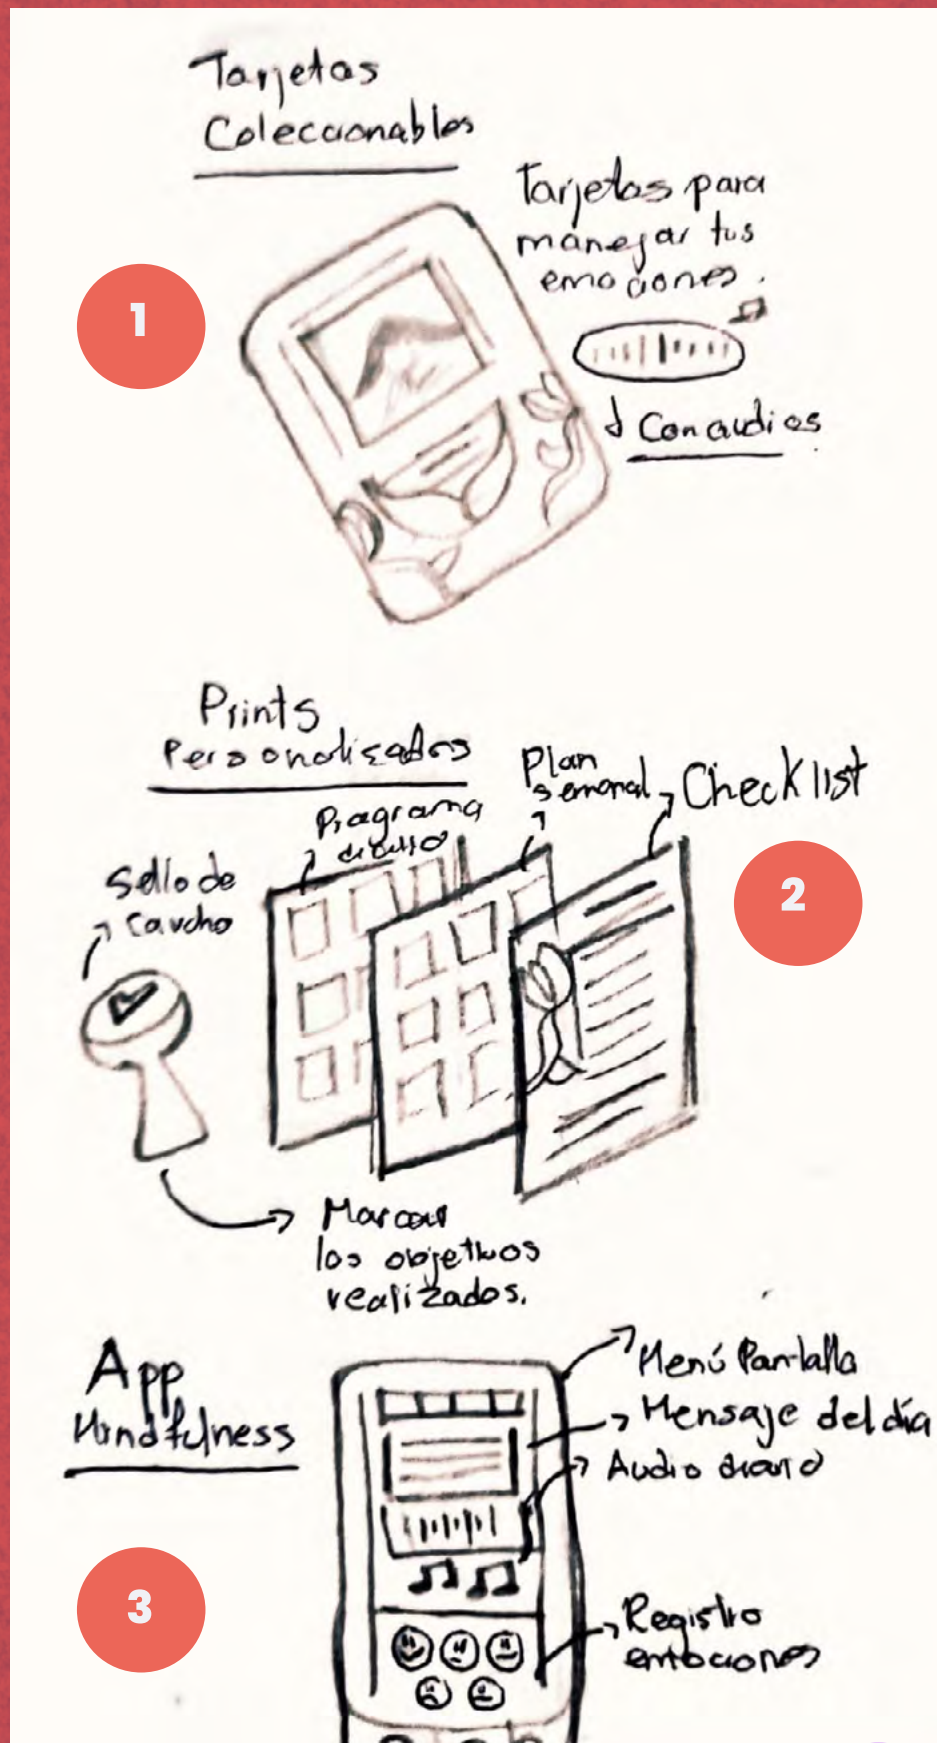 Tarjetas
Coleccionables
Tarjetas para
manejar tus
emociones.
1
Con audios
Prints
Personalizados
Plan
semonal
Checklist
Programa
diario
Sello de
Caucho
2
Marcar
los objetivos
realizados.
App
Mindfulness
Menú Pantalla
Mensaje del día
Audio diario
3
Registro
emociones